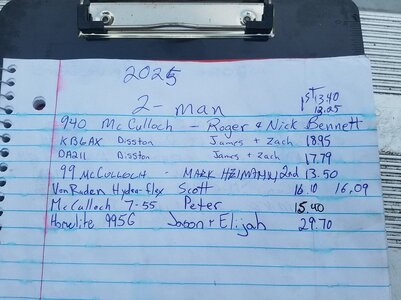 2025
2-man
1st 13.40
12.25
940 McCulloch - Roger & Nick Bennett
KB6AX Disston James + Zach 18.95
DA211 Disston James + Zach 17.79
99 McCULLOCH - MARK 2nd 13.50
Von Ruden Hydra-flex Scott 16.10 16.09
McCulloch 7-55 Peter 15.40
Homelite 995G Jason + Elijah 29.70